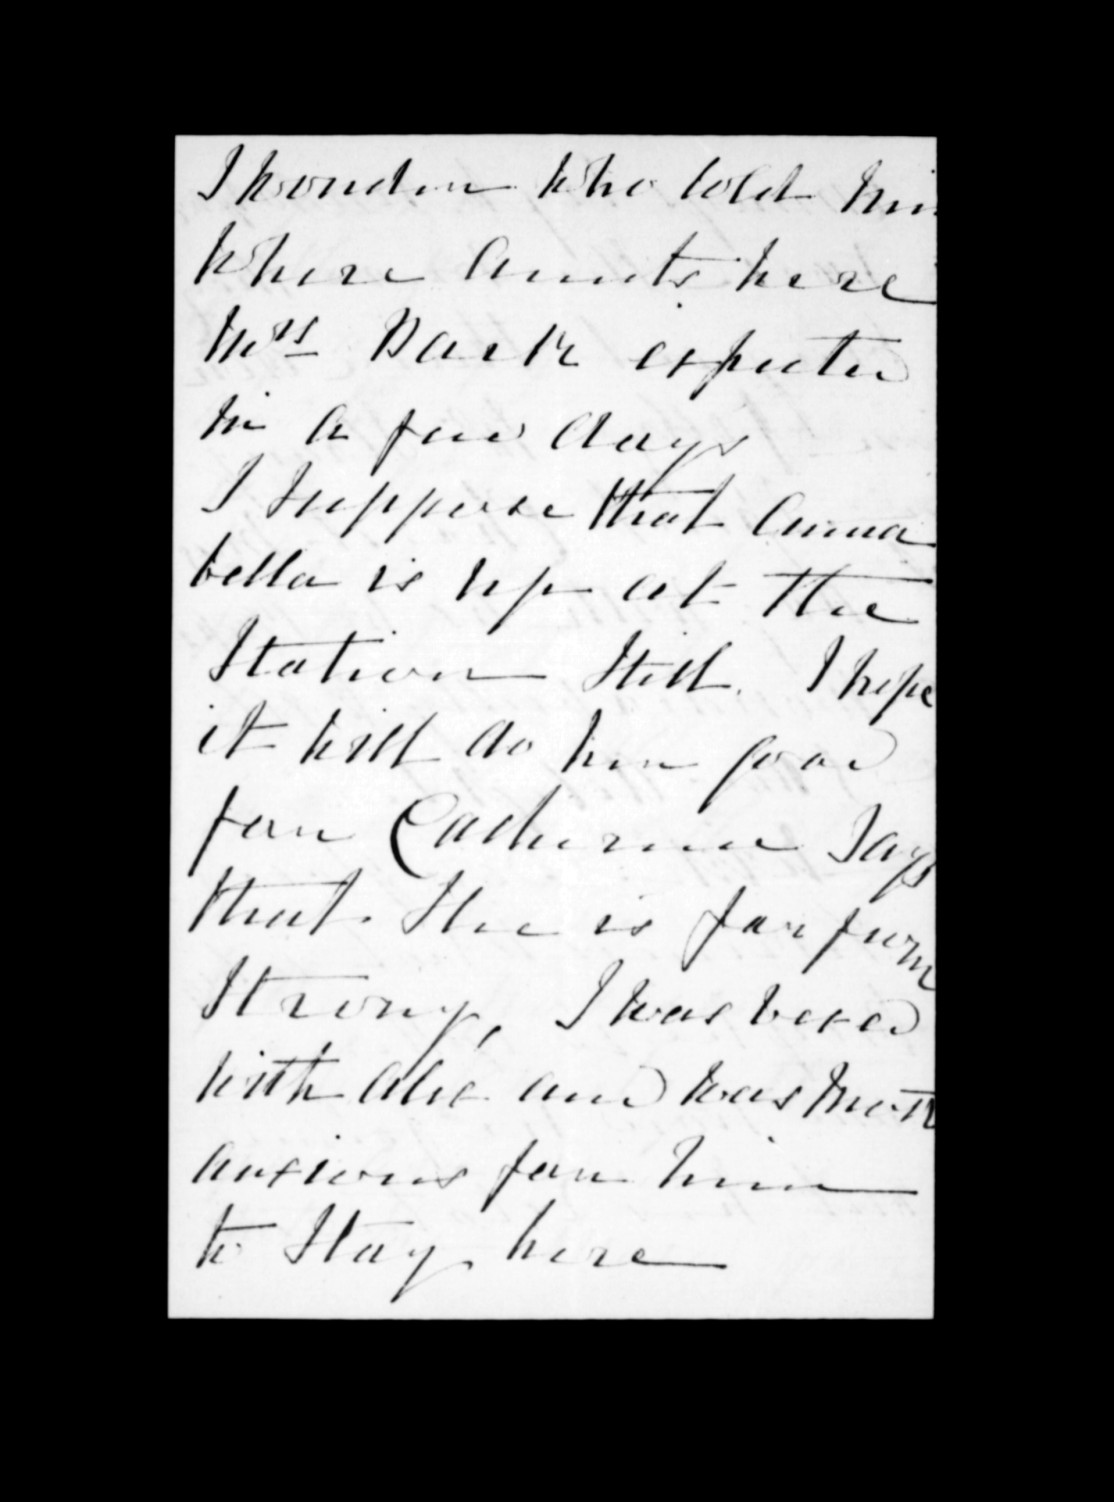 I wonder who told him
where Aunts were
Mrs Bark expected
in a few days
I suppose that Anna
bella is up at the
Station still. I hope
it will do her good
for Catherine says
that she is far from
strong, I was vexed
with Alic and was most
anxious for him
to stay here